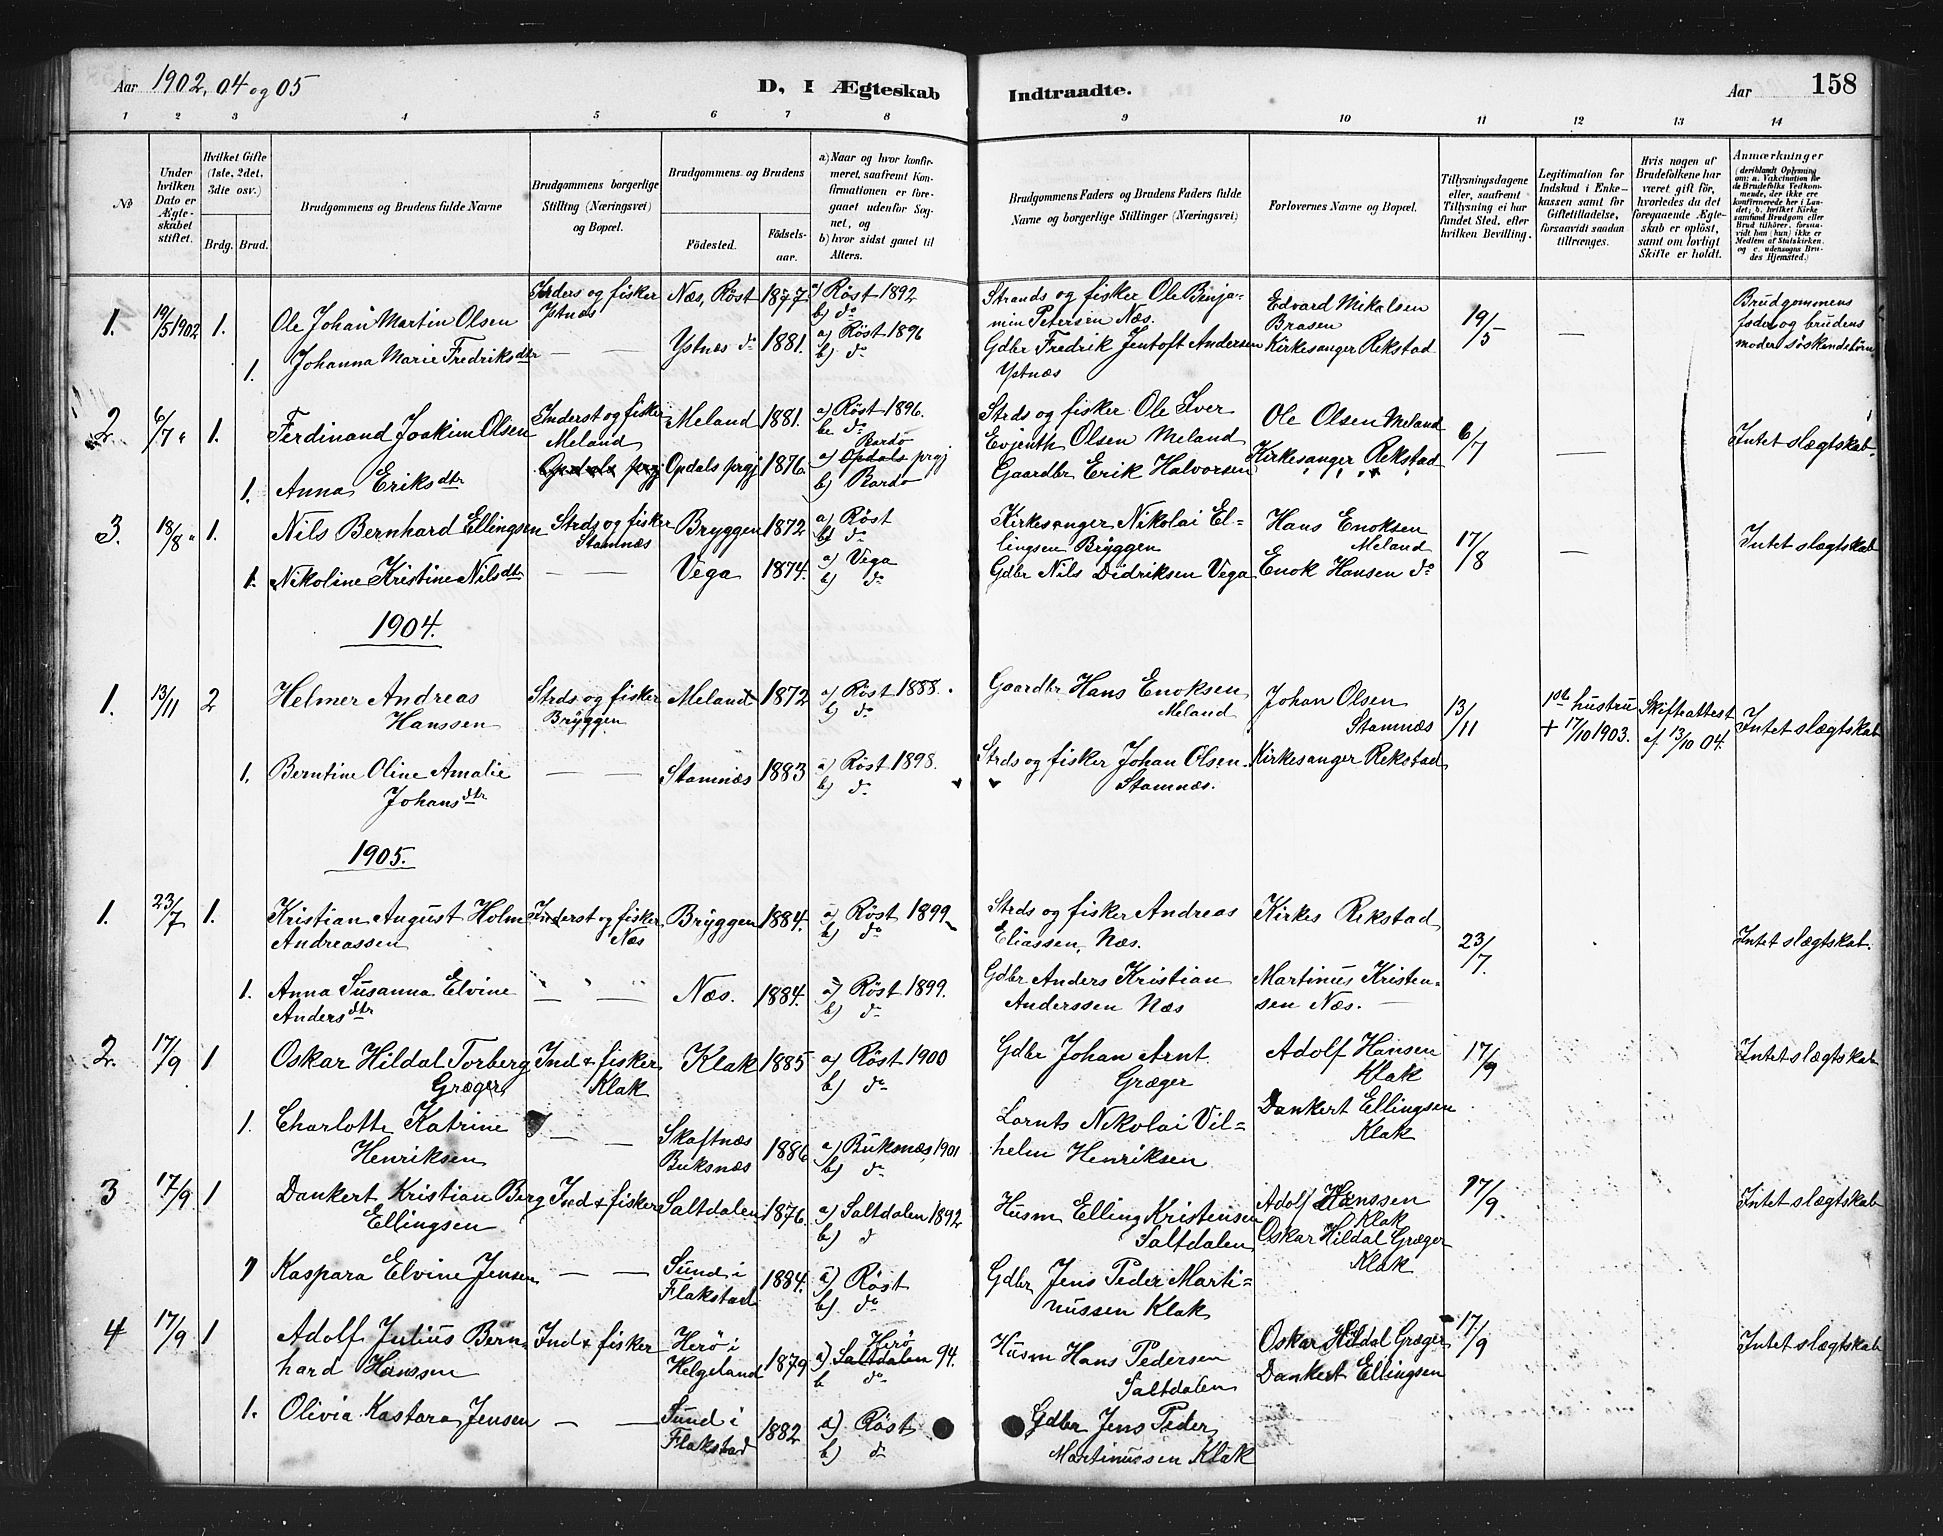 Aar 1902, 04 og 05
D, I Ægteskab Indtraadte.
Aar 158
1 2 3 4 5 6 7 8 9 10 11 12 13 14
No
Under hvilken Dato er Ægteskabet stiftet.
Hvilket Gifte (1ste, 2det, 3die osv.)
Brdg. Brud.
Brudgommens og Brudens fulde Navne
Brudgommens borgerlige Stilling (Næringsvei) og Bopæl.
Brudgommens og Brudens
Fødested. Fødselsaar.
a) Naar og hvor konfirmeret, saafremt Konfirmationen er foregaaet udenfor Sognet, og
b) hvor sidst gaaet til Alters.
Brudgommens Faders og Brudens Faders fulde Navne og borgerlige Stillinger (Næringsvei)
Forlovernes Navne og Bopæl.
Tillysningsdagene eller, saafremt Tillysning ei har fundet Sted, efter hvilken Bevilling.
Legitimation for Indskud i Enkekassen samt for Giftetilladelse, forsaavidt saadan tiltrænges.
Hvis nogen af Brudefolkene har været gift før, hvorledes da det foregaaende Ægteskab er opløst, samt om lovligt Skifte er holdt.
Anmærkninger (deriblandt Oplysning om: a. Vakcination for de Brudefolks Vedkommende, der ikke ere konfirmerede her i Landet; b. hvilket Kirkesamfund Brudgom eller Brud tilhører, forsaavidt han (hun) ikke er Medlem af Statskirken, og c. udensogns Brudes Hjemsted.)
1. 19/5 1902 1. Ole Johan Martin Olsen
Inders og fisker Ystnæs
Næs, Röst 1877. a) Röst 1892 b) do
Strands og fisker Ole Benjamin Petersen Næs.
Edvard Mikalsen Braasen
19/5 —
Brudgommens fader og brudens moder söskendebörn
1. Johanna Marie Fredriksdtr — —
Ystnæs do 1881. a) Röst 1896 b) do
Gdbr Fredrik Jentoft Andersen Ystnæs
Kirkesanger Rekstad
2. 6/7 " 1. Ferdinand Joakim Olsen
Inderst og fisker Meland
Meland 1881. a) Röst 1896. b) do
Strds og fisker Ole Iver Evjenth Olsen Meland
Ole Olsen Meland
6/7 — Intet slægtskab.
1. Anna Eriksdtr
Opdals prgj Opdals prgj 1876. a) Opdals prgj Bardo b) Bardo
Gaardbr Erik Halvorsen
Kirkesanger Rekstad
3. 18/8 " 1. Nils Bernhard Ellingsen
Strds og fisker Stamnæs
Bryggen 1872 a) Röst b) do
Kirkesanger Nikolai Ellingsen Bryggen
Hans Enoksen Meland
17/8 — Intet slægtskab
1. Nikoline Kristine Nilsdtr — —
Vega 1874. a) Vega b) do
Gdbr Nils Didriksen Vega
Enok Hansen do
1904.
1. 13/11 2 Helmer Andreas Hanssen
Strds og fisker Bryggen
Meland 1872 a) Röst 1888. b) do
Gaardbr Hans Enoksen Meland
Johan Olsen Stamnæs
13/11
1ste hustru + 17/10 1903.
Skifteattest af 13/10 04.
Intet slægtskab
1. Berntine Oline Amalie Johansdtr — —
Stamnæs 1883 a) Röst 1898. b) do
Strds og fisker Johan Olsen Stamnæs.
Kirkesanger Rekstad
1905.
1. 23/7 1. Kristian August Holm Andreassen
Inderst og fisker Næs
Bryggen 1884. a) Röst 1899 b) do
Strds og fisker Andreas Eliassen, Næs.
Kirkes Rekstad
23/7. Intet slægtskab.
1. Anna Susanna Elvine Andersdtr — —
Næs. 1884. a) Röst 1899. b) do
Gdbr Anders Kristian Anderssen Næs
Martinus Kristensen Næs. —
2. 17/9 1 Oskar Hildal Torberg Græger
Ind & fisker Klak
Klak 1885 a) Röst 1900 b) do
Gdbr Johan Arnt Græger
Adolf Hansen Klak
17/9 Intet slægtskab
1. Charlotte Katrine Henriksen — —
Skaftnæs Buksnæs 1886 a) Buksnæs, 1901 b) do
Lornts Nikolai Vilhelm Henriksen
Dankert Ellingsen Klak
3 17/9 1 Dankert Kristian Berg Ellingsen
Ind & fisker
Saltdalen 1876. a) Saltdalen 1892 b) d
Husm Elling Kristensen Saltdalen
Adolf Hanssen Klak
17/9 Intet slægtskab
1 Kaspara Elvine Jensen — —
Sund i Flakstad 1884. a) Röst b) do
Gdbr Jens Peder Martinussen Klak
Oskar Hildal Græger Klak
4 17/9 1 Adolf Julius Bernhard Hanssen
Ind & fisker
Herö i Helgeland 1879 a) Saltdalen Herö 94. b do
Husm Hans Pedersen Saltdalen
Oskar Hildal Græger
17/9 Intet slægtskab
1. Olivia Kastara Jensen — —
Sund i Flakstad 1882 a) Röst b) do
Gdbr Jens Peder Martinussen Klak
Dankert Ellingsen